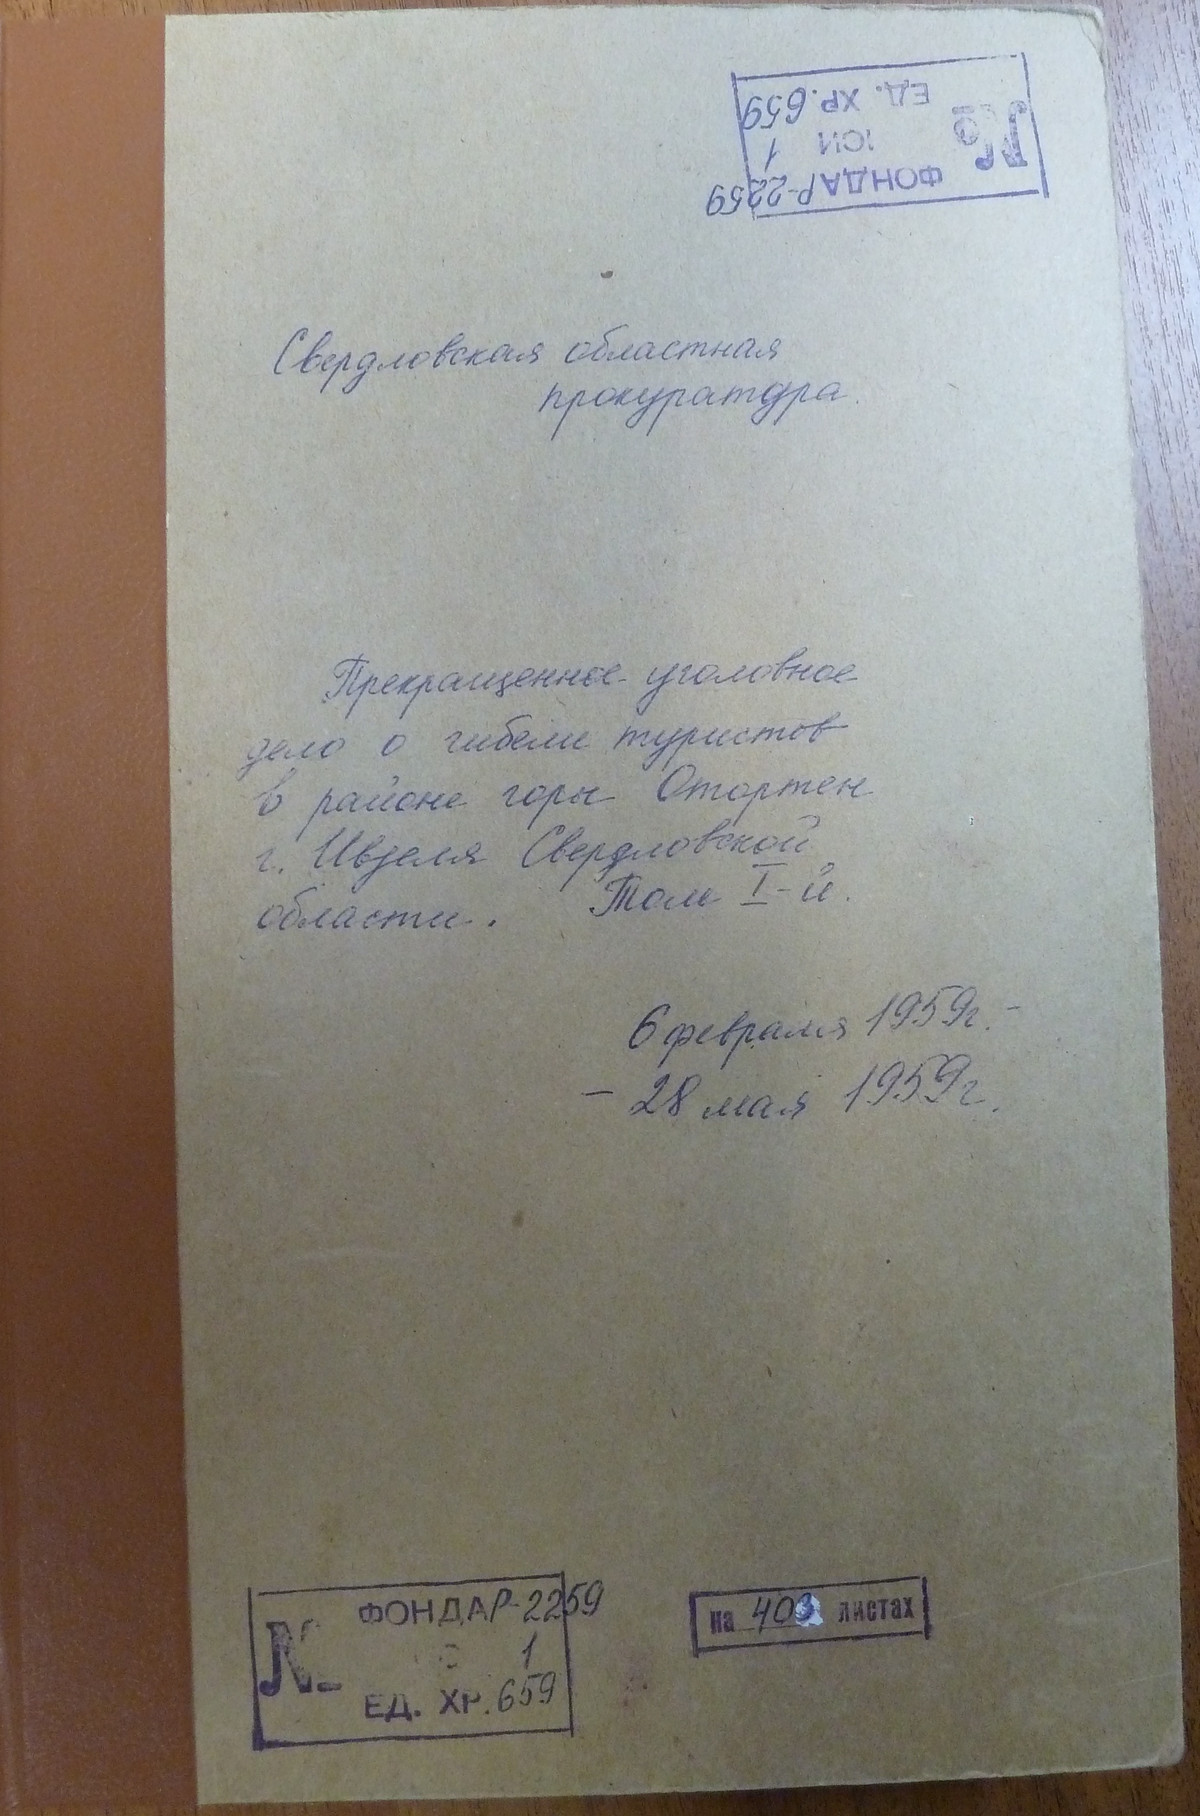 № ФОНДА Р-2259
1
ЕД. ХР. 659
Свердловская областная
прокуратура.
Прекращенное уголовное
дело о гибели туристов
в районе горы Отортен
г. Ивделя Свердловской
области. Том I-й.
6 февраля 1959г. -
- 28 мая 1959г.
№ ФОНДА Р-2259
1
ЕД. ХР. 659
на 403 листах